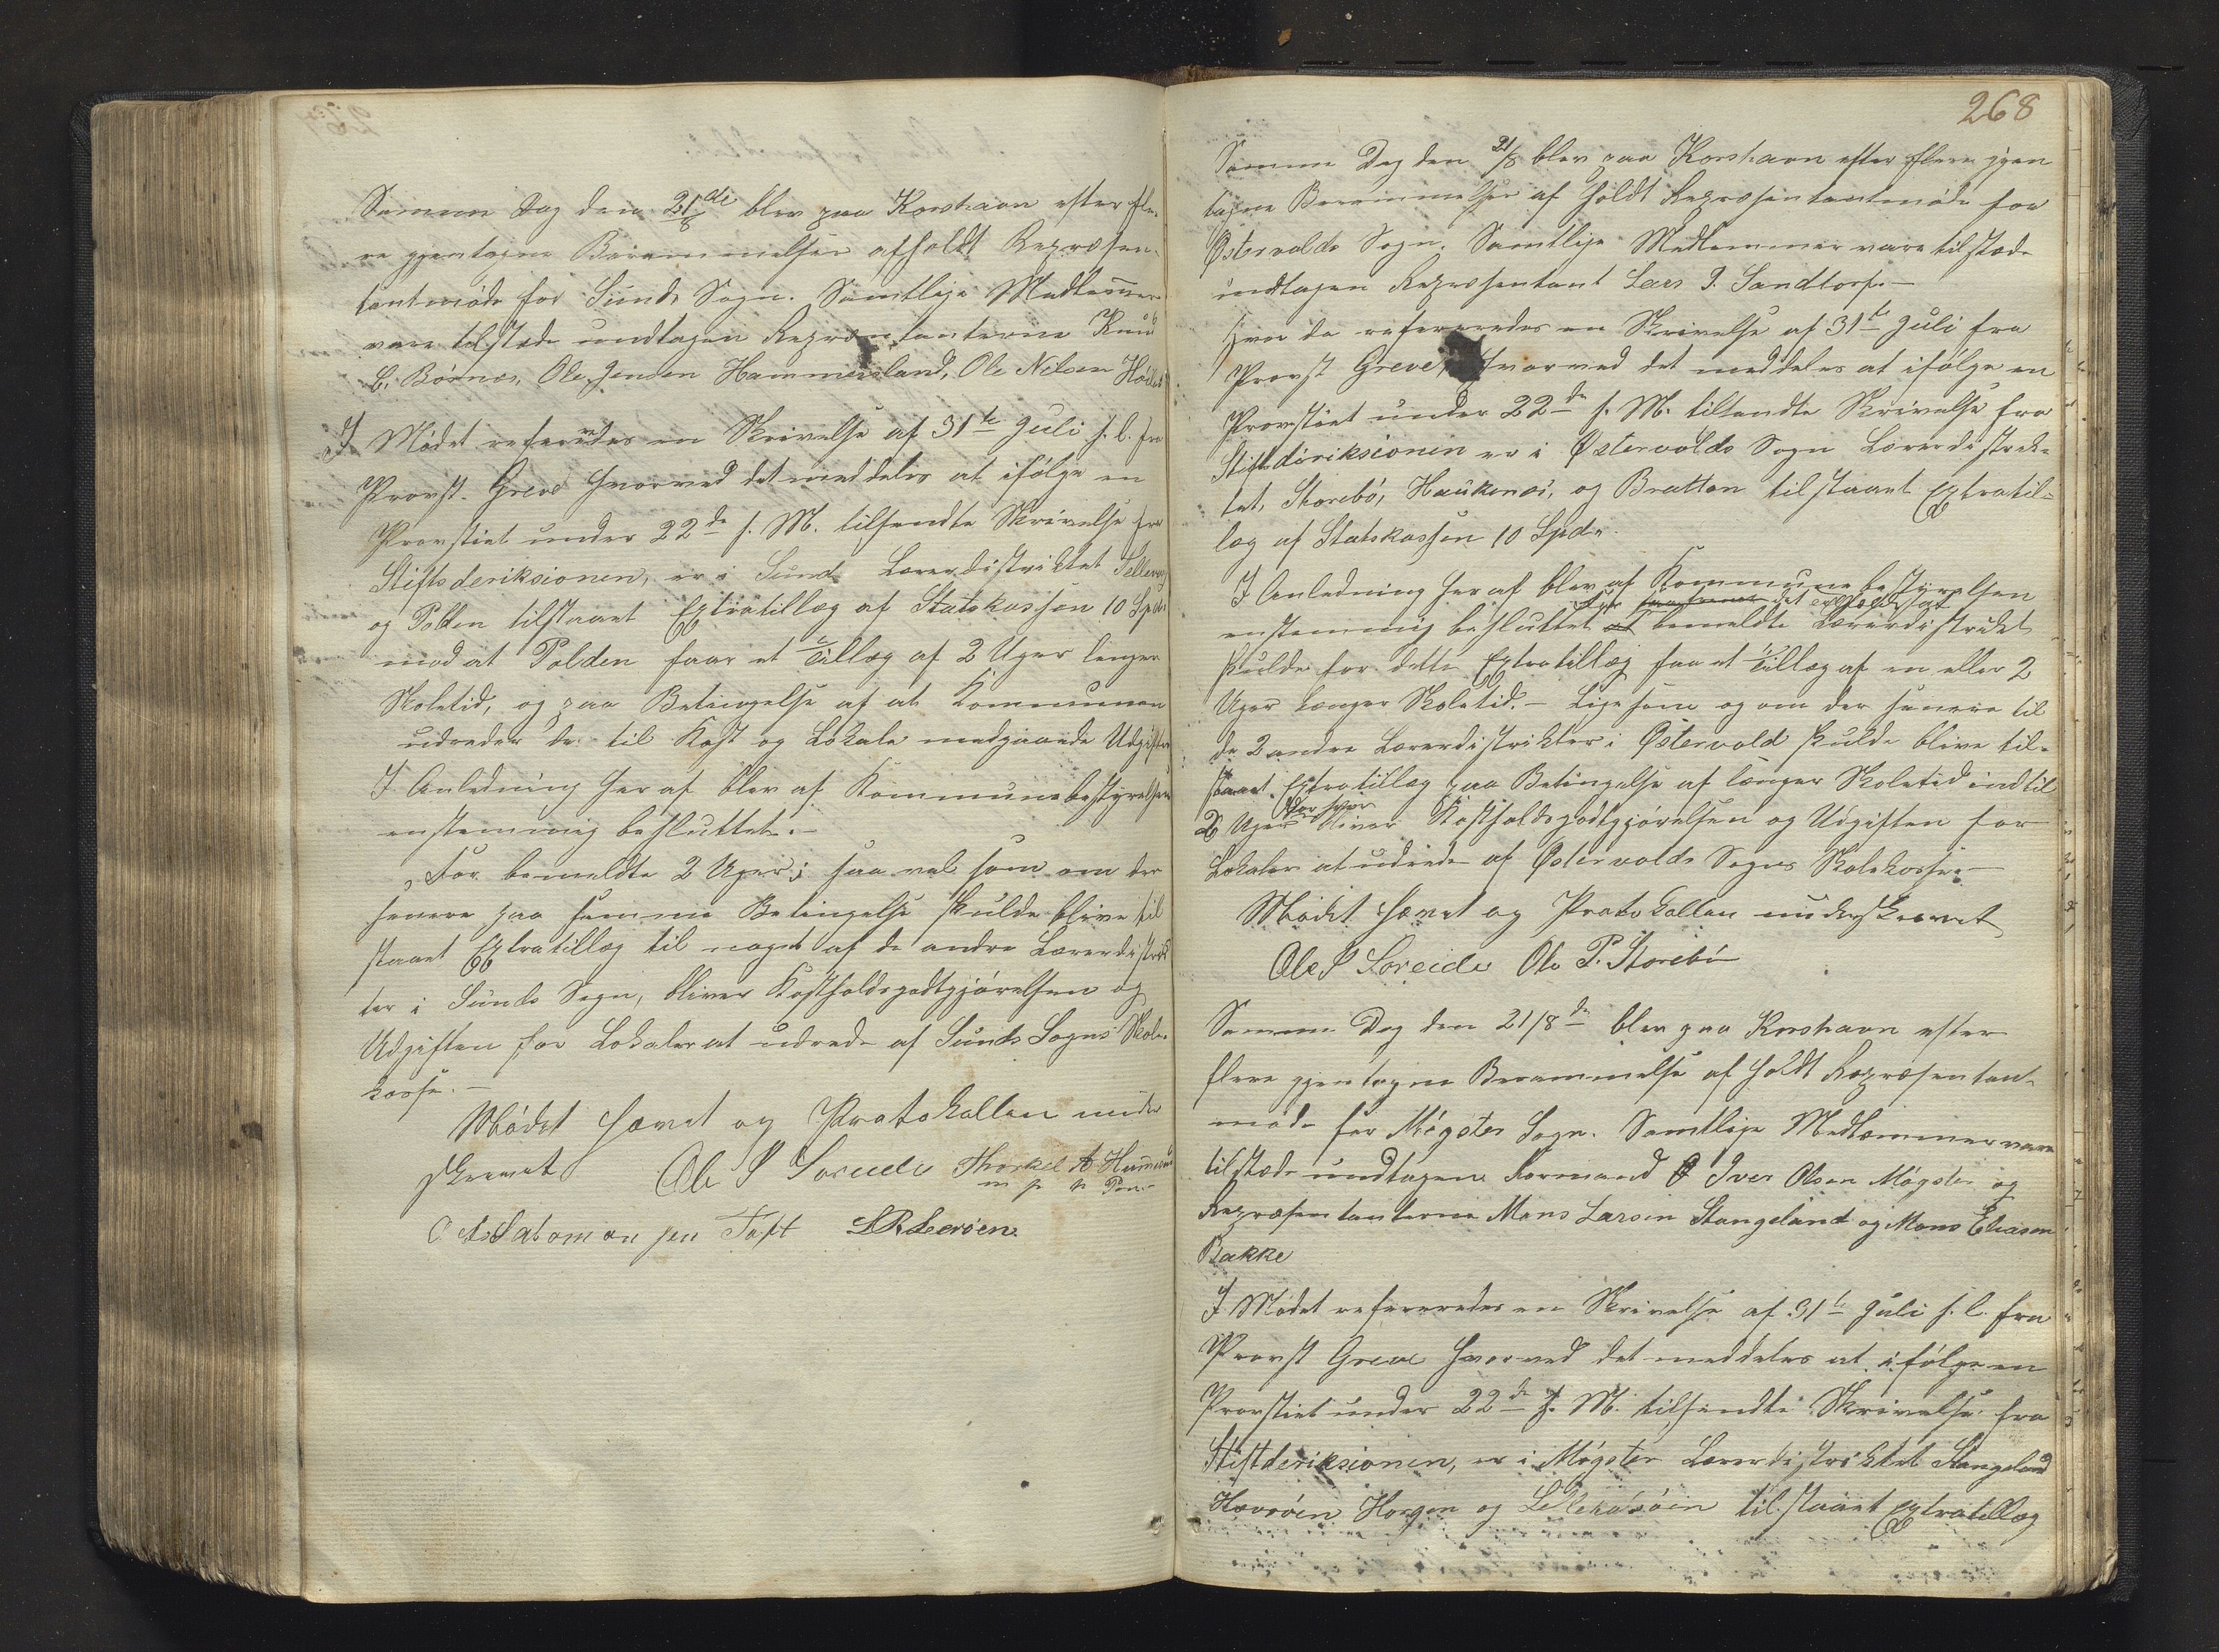 Samme Dag den 21/8 de blev paa Korshavn efter fle-
re gjentagne Berammelser afholdt Repræsen-
tantmøde for Sunds Sogn. Samtlige Medlemmer
vare tilstæde undtagen Repræsentanterne Knud
C. Børnæs, Ole Jensen Hammersland, Ole Nilsen
I Mødet refereredes en Skrivelse af 31te Juli f. l. fra
Provst Greve hvorved det meddeles at ifølge en
Provstiet under 22de s. M. tilsendte Skrivelse fra
Stiftsderiksionen, er i Sund Lærerdistriktet Tellevig
og Polden tilstaaet Extratillæg af Statskassen 10 Spd.
mod at Polden faar et Tillæg af 2 Uger længer
Skoletid, og paa Betingelse af at Kommunen
udreder de til Kost og Lokale medgaaende Udgifter
I Anledning heraf blev af Kommunebestyrelsen
enstemmig besluttet.-
For bemeldte 2 Uger; saa vel som om der
senere paa samme Betingelse skulde blive til
staaet Extratillæg til noget af de andre Lærerdistrik
ter i Sunds Sogn, bliver Kostholdsgodtgjørelsen og
Udgiften for Lokaler at udrede af Sunds Sogns Skole-
kasse.-
Mødet hævet og Protokollen under
skrevet Ole S Søreide Thorkel A
m p n Pen
Salomonsen Toft L R Leerøen
268
Samme Dag den 21/8 blev paa Korshavn efter flere gjen
tagne Berammelser afholdt Repræsentantmøde for
Østervolds Sogn. Samtlige Medlemmer vare tilstæde
undtagen Repræsentant Lars P. Sandtorf.-
Hvor da refereredes en Skrivelse af 31te Juli fra
Provst Greve, hvorved det meddeles at ifølge en
Provstiet under 22de s. M. tilsendte Skrivelse fra
Stiftsdiriksionen er i Østervolds Sogn Lærerdistrik-
tet, Storebø, Haukenæs, og Bratten tilstaaet Extratil-
læg af Statskassen 10 Spd.
I Anledning heraf blev af Kommunebestyrelsen
det at
enstemmig besluttet at bemeldte Lærerdistrikt
skulde for dette Extratillæg faa et Tillæg af en eller 2
Uger længer Skoletid.- Ligesom og om der senere til
de 2 andre Lærerdistrikter i Østervold skulde blive til-
staaet Extratillæg paa Betingelse af længer Skoletid indtil
for hver
2 Uger bliver Kostholdsgodtgjørelsen og Udgiften for
Lokaler at udrede af Østervolds Sogns Skolekasse.-
Mødet hævet og Protokollen underskrevet
Ole S Søreide Ole P. Storebø
Samme Dag den 21/8 de blev paa Korshavn efter
flere gjentagne Berammelse afholdt Repræsentant-
møde for Møgster Sogn. Samtlige Medlemmer vare
tilstæde undtagen Formand O Iver Olsen Møgster og
Repræsentanterne Mons Larsen Stangeland og Mons Eliasen
Bakke
I Mødet refereredes en Skrivelse af 31te Juli f. l. fra
Provst Greve hvorved det meddeles at ifølge en
Provstiet under 22de s. M. tilsendte Skrivelse fra
Stiftderiksionen, er i Møgster Lærerdistriktet Stangeland
Hævrøen Horgen og Lillekalsøen tilstaaet Extratillæg